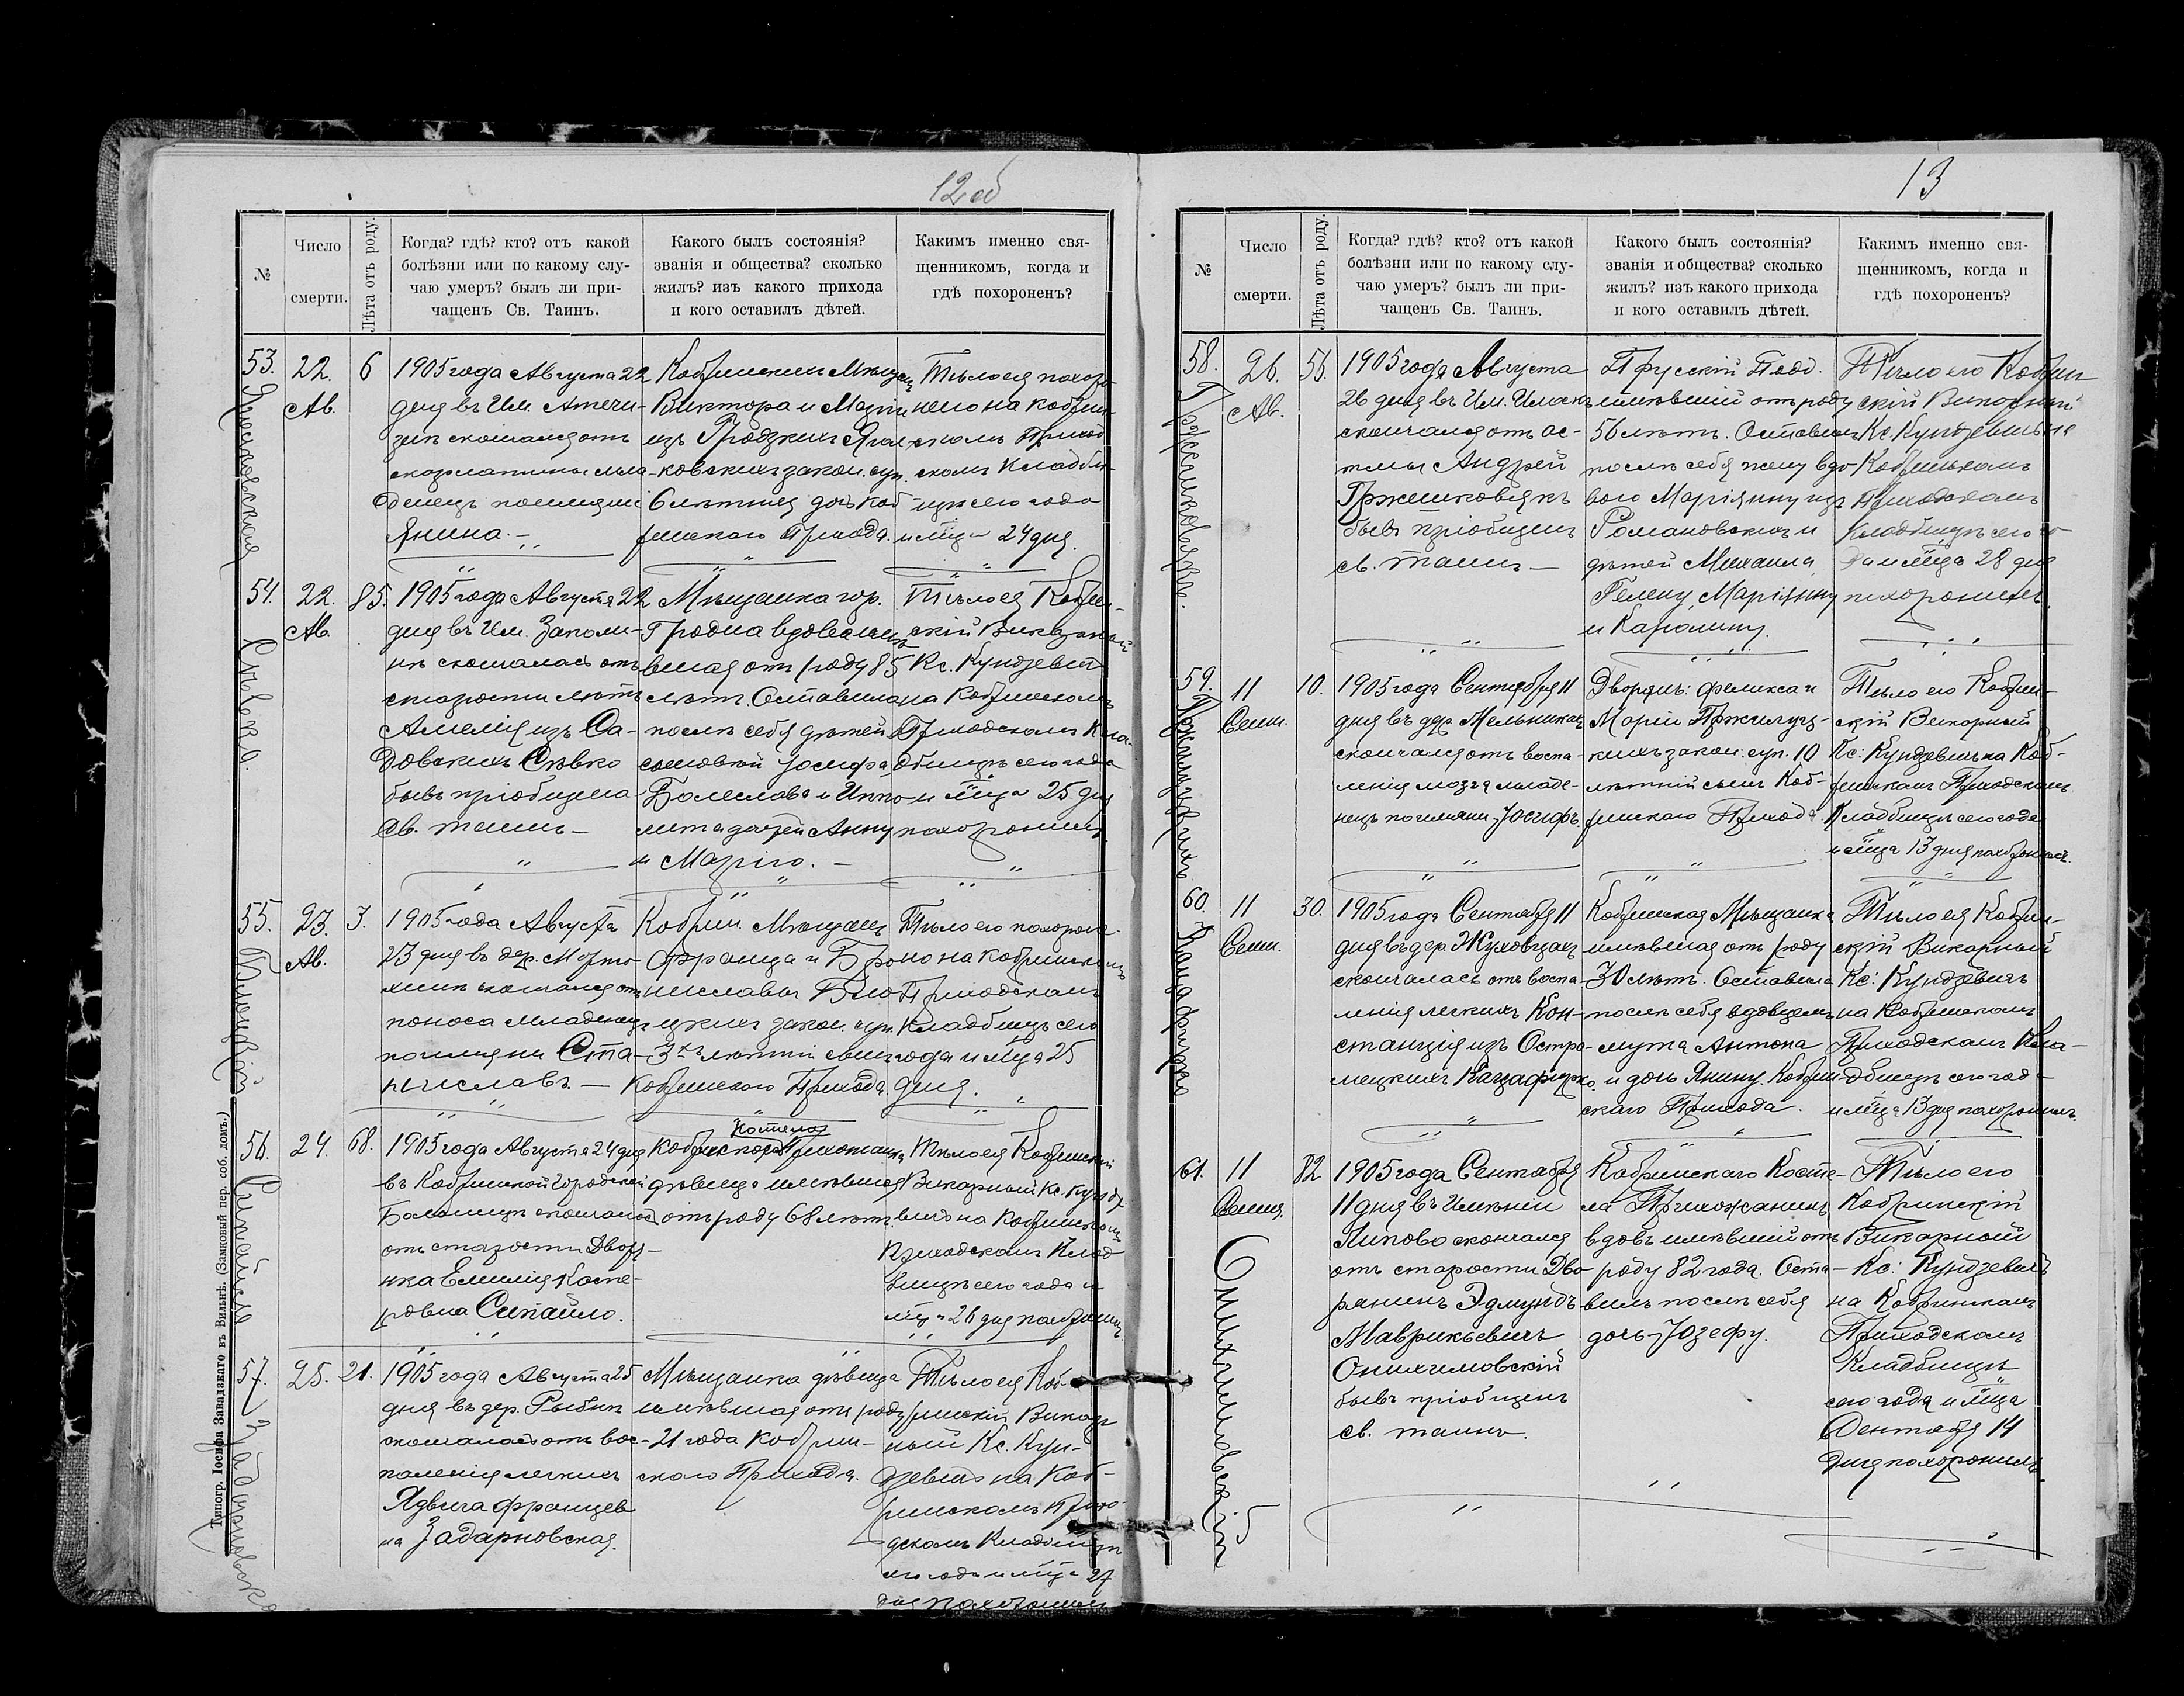 12 об
№
Число
смерти.
Лѣта отъ роду.
Когда? гдѣ? кто? отъ какой
болѣзни или по какому слу-
чаю умеръ? былъ ли при-
чащенъ Св. Таинъ.
Какого былъ состоянія?
званія и общества? сколько
жилъ? изъ какого прихода
и кого оставилъ дѣтей.
Какимъ именно свя-
щенникомъ, когда и
гдѣ похороненъ?
53.
22.
Ав.
6
1905 года Августа 22
дня въ Им.
скончалась отъ
скарлатины мла-
денецъ по имени
Янина. —
Кобринскихъ Мѣщан
Виктора и Маріи
изъ Гродзкихъ Ягел-
ковскихъ закон. суп.
6 лѣтняя дочь Коб
ринскаго Прихода.
Тѣло ея похоро
нено на Кобрин
скомъ Приход
скомъ Кладби-
щѣ сего года
и мца 24 дня.
54.
Сѣвко.
22.
Ав.
85.
1905 года Августа 22
дня въ Им. Заполи-
ѣ скончалась отъ
старости лѣтъ
Амелія изъ Са-
довскихъ Сѣвко
бывъ пріобщена
св. таинъ —
Мѣщанка гор.
Гродна вдова имѣ
вшая отъ роду 85
лѣтъ. Оставила
послѣ себя дѣтей
сыновей Іосифа
Болеслава и Иппо-
лита дочерей Анну
и Марію. —
Тѣло ея Кобрин-
скій Викарный
Кс. Кундзевич
на Кобринскомъ
Приходскомъ Кла-
дбищѣ сего года
и мца 25 дня
похоронилъ
55.
23.
Ав.
3.
1905 года Августа
23 дня въ дер.
скончался отъ
поноса младенецъ
по имени Ста-
ниславъ. —
Кобрин. Мѣщанъ
Франца и Бро
ниславы
закон. суп.
3хъ лѣтній сынъ
Кобринскаго Прихода.
Тѣло его похоро
нено на Кобринскомъ
Приходскомъ
Кладбищѣ сего
года и мца 25
дня.
56.
Сипайло
24.
68.
1905 года Августа 24 дня
въ Кобринской Городской
Больницѣ скончалась
отъ старости Дворя-
нка Емилія Каспе-
ровна Сипайло.
костела
Кобринскаго Прихожанка
дѣвица имѣвшая
отъ роду 68 лѣтъ.
Тѣло ея Кобринскій
Викарный Кс. Кундзе
вичъ на Кобринскомъ
Приходскомъ Клад
бищѣ сего года и
мца 26 дня похоронилъ
57.
Задарновская
25.
21.
1905 года Августа 25
дня въ дер. Рыбнѣ
скончалась отъ вос-
паленія легкихъ
Ядвига Францев
на Задарновская.
Мѣщанка дѣвица
имѣвшая отъ роду
21 года Кобрин-
скаго Прихода.
Тѣло ея Коб-
ринскій Викар
ный Кс. Кун-
дзевичъ на Коб-
ринскомъ Прихо-
дскомъ Кладбищѣ
сего года и мца 27
дня похоронилъ
Типогр. Іосифа Завадзкаго въ Вильнѣ. (Замковый пер. соб. домъ.)
13
№
Число
смерти.
Лѣта отъ роду.
Когда? гдѣ? кто? отъ какой
болѣзни или по какому слу-
чаю умеръ? былъ ли при-
чащенъ Св. Таинъ.
Какого былъ состоянія?
званія и общества? сколько
жилъ? изъ какого прихода
и кого оставилъ дѣтей.
Какимъ именно свя-
щенникомъ, когда и
гдѣ похороненъ?
58.
Гржешковякъ.
26.
Ав.
56.
1905 года Августа
26 дня въ Им.
скончался отъ ас-
тмы Андрей
Гржешковякъ
бывъ пріобщенъ
св. таинъ —
Прусскій Подд.
имѣвшій отъ роду
56 лѣтъ. Оставилъ
послѣ себя жену вдо
вою Маріянну изъ
Романовскихъ и
дѣтей Михаила
Гелену, Маріянну
и Каролину.
Тѣло его Кобрин
скій Викарный
Кс. Кундзевичъ на
Кобринскомъ
Приходскомъ
Кладбищѣ сего го
да и мца 28 дня
похоронилъ.
59.
11
Сент.
10.
1905 года Сентября 11
дня въ дер. Мельникахъ
скончался отъ воспа-
ленія мозга младе-
нецъ по имени Іосифъ.
Дворянъ: Феликса и
Маріи Пржилуц-
кихъ закон. суп. 10
лѣтній сынъ Коб-
ринскаго Прихода.
Тѣло его Кобрин-
скій Викарный
Кс: Кундзевичъ на Коб-
ринскомъ Приходскомъ
Кладбищѣ сего года
и мца 13 дня похоронилъ.
60.
11
Сент.
30.
1905 года Сентября 11
дня въ дер Жуховцахъ
скончалась отъ воспа-
ленія легкихъ Кон-
станція изъ Остро-
мецкихъ
Кобринская Мѣщанка
имѣвшая отъ роду
30 лѣтъ. Оставила
послѣ себя вдовцемъ
мужа Антона
и дочь Янину. Кобрин-
скаго Прихода.
Тѣло ея Кобрин-
скій Викарный
Кс: Кундзевичъ
на Кобринскомъ
Приходскомъ Кла-
дбищѣ сего года
и мца 13 дня похоронилъ.
61.
Онихимовскій
11
Сент.
82
1905 года Сентября
11 дня въ Имѣніи
Липово скончался
отъ старости Дво-
рянинъ Эдмундъ
Маврикьевичъ
Онихимовскій
бывъ пріобщенъ
св. таинъ.
Кобринскаго Косте-
ла Прихожанинъ
вдовъ имѣвшій отъ
роду 82 года. Оста-
вилъ послѣ себя
дочь Юзефу.
Тѣло его
Кобринскій
Викарный
Кс: Кундзевичъ
на Кобринскомъ
Приходскомъ
Кладбищѣ
сего года и мца
Сентября 14
дня похоронилъ.